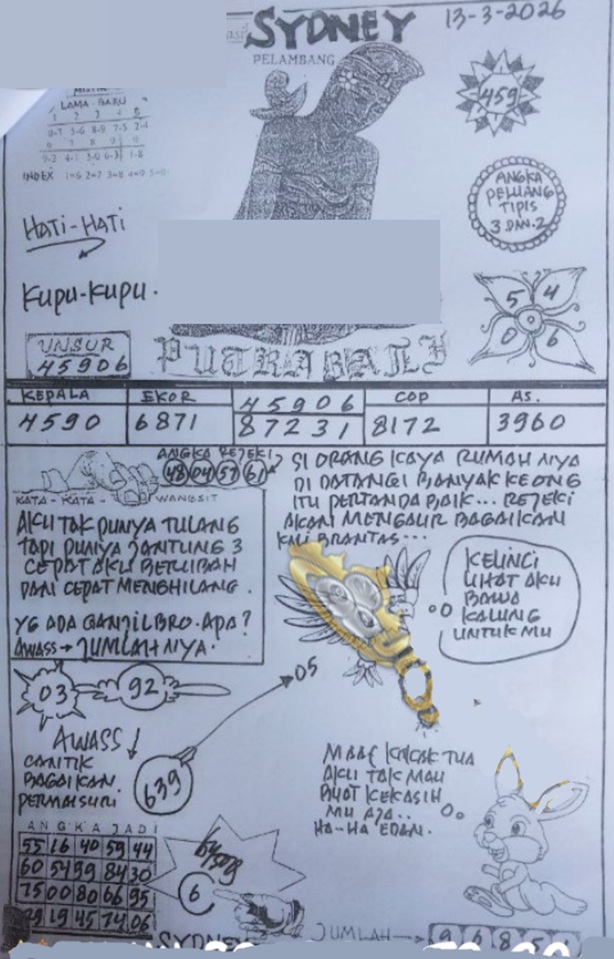 SYDNEY
13-3-2026
PELAMBANG
LAMA - BARU
1 2 3 4 5
0-7 5-6 8-9 7-5 2-4
6 7 8 9 0
9-2 4-1 3-0 6-3 1-8
INDEX 1=6 2=7 3=8 4=9 5=0
459
ANGKA
PELUANG
TIPIS
3 DAN. 2
HATI-HATI
KUPU-KUPU.
5 4
0 6
UNSUR
45906
PUTRA BALI
KEPALA EKOR 45906 COP AS.
4590 6871 87231 8172 3960
ANGKA REJEKI
48 04 57 61
KATA - KATA - WANGSIT
AKU TAK PUNYA TULANG
TAPI PUNYA JANTUNG 3
CEPAT AKU BERUBAH
DAN CEPAT MENGHILANG.
YG ADA GANJIL BRO. APA?
AWASS → JUMLAH NYA.
SI ORANG KAYA RUMAH NYA
DI DATANGI BANYAK KEONG
ITU PERTANDA BAIK... REJEKI
AKAN MENGALIR BAGAIKAN
KALI BRANTAS...
KELINCI
LIHAT AKU
BAWA
KALUNG
UNTUK MU
03 92
05
AWASS ↓
CANTIK
BAGAIKAN
PERMAISURI
639
MAAF KAKAK TUA
AKU TAK MAU
BUAT KEKASIH
MU AJA..
HA-HA EDAN.
ANGKA JADI
55 16 40 59 44
60 54 99 84 30
75 00 80 66 95
19 45 74 06
6
SYDNEY
JUMLAH → 9 6 8 5